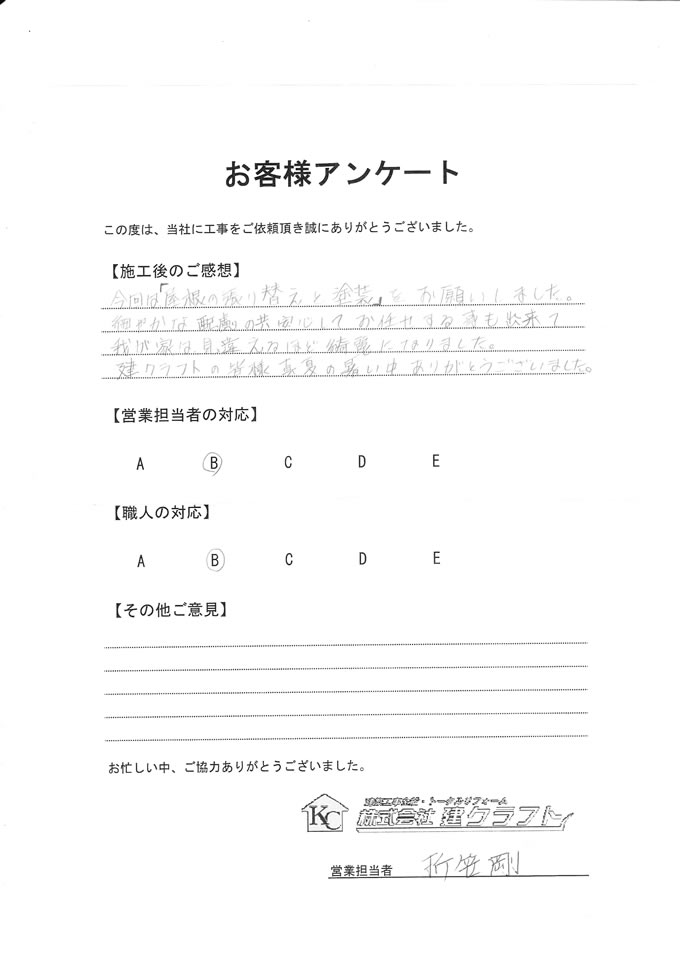 お客様アンケート
この度は、当社に工事をご依頼頂き誠にありがとうございました。
【施工後のご感想】
今回は「屋根の張り替えと塗装」をお願いしました。
細やかな配慮の共安心してお任せする事も出来て
我が家は見違えるほど綺麗になりました。
建クラフトの皆様真夏の暑い中ありがとうございました。
【営業担当者の対応】
A B C D E
【職人の対応】
A B C D E
【その他ご意見】
お忙しい中、ご協力ありがとうございました。
KC
建築工事全般・トータルリフォーム
株式会社 建クラフト
営業担当者 折笠剛